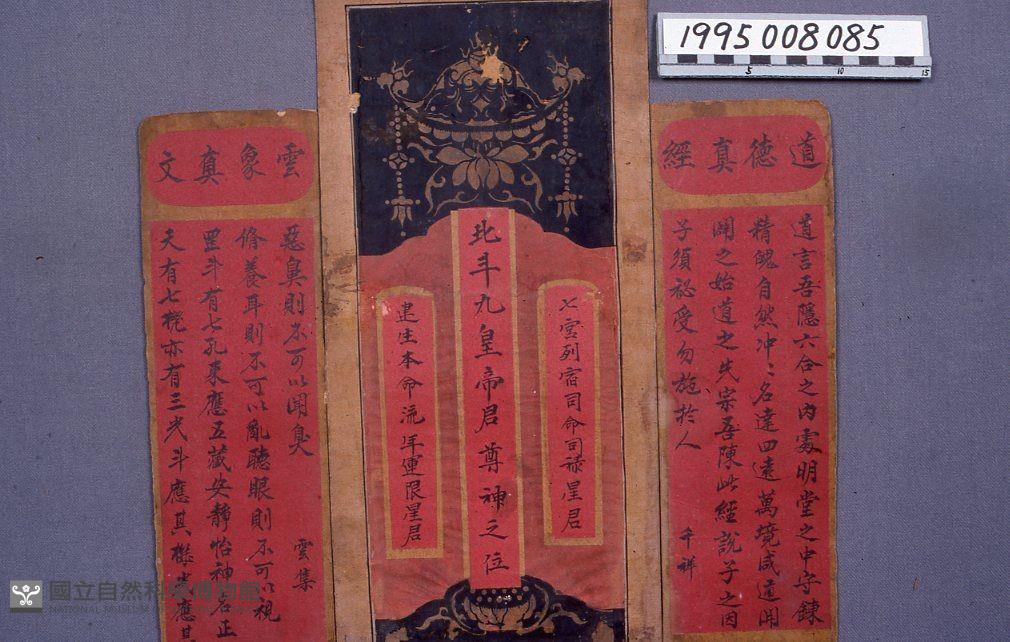 1995 008 085
5 10 15
道德真經
道言吾隱六合之內處明堂之中守鍊
精魄自然冲〻名達四遠萬境咸道開
闢之始道之先宗吾陳此經說子之因
子須祕受勿施於人
七宮列宿司命司祿星君
北斗九皇帝君尊神之位
建生本命流年運限星君
雲象真文
惡臭則不可以聞臭 雲集
脩養耳則不可以亂聽眼則不可以視
罡斗有七孔來應五藏安靜怡神
天有七機亦有三光斗應其
國立自然科學博物館
NATIONAL MUSEUM